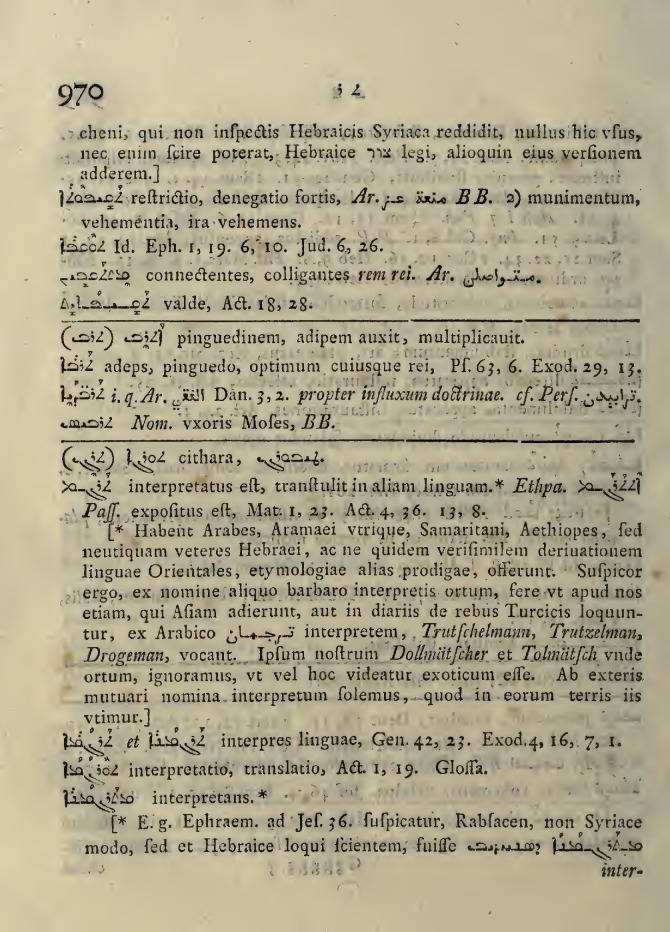 970
ܬ ܪ
cheni, qui non inſpectis Hebraicis Syriaca reddidit, nullus hic vſus,
nec enim ſcire poterat, Hebraice צור legi, alioquin eius verſionem
adderem.]
reſtrictio, denegatio fortis, Ar. BB. 2) munimentum,
vehementia, ira vehemens.
Id. Eph. 1, 19. 6, 10. Jud. 6, 26.
connectentes, colligantes rem rei. Ar.
valde, Act. 18, 28.
pinguedinem, adipem auxit, multiplicauit.
ܬܪܒܐ adeps, pinguedo, optimum cuiusque rei, Pſ. 63, 6. Exod. 29, 13.
i. q. Ar. Dan. 3, 2. propter influxum doctrinae. cf. Perſ.
Nom. vxoris Moſes, BB.
cithara,
ܬܪܓܡ interpretatus eſt, tranſtulit in aliam linguam.* Ethpa. ܐܬܬܪܓܡ
Paſſ. expoſitus eſt, Mat. 1, 23. Act. 4, 36. 13, 8.
[* Habent Arabes, Aramaei vtrique, Samaritani, Aethiopes, ſed
neutiquam veteres Hebraei, ac ne quidem veriſimilem deriuationem
linguae Orientales, etymologiae alias prodigae, offerunt. Suſpicor
ergo, ex nomine aliquo barbaro interpretis ortum, fere vt apud nos
etiam, qui Aſiam adierunt, aut in diariis de rebus Turcicis loquun-
tur, ex Arabico ترجمان interpretem, Trutſchelmann, Trutzelman,
Drogeman, vocant. Ipſum noſtrum Dollmätſcher et Tolmätſch vnde
ortum, ignoramus, vt vel hoc videatur exoticum eſſe. Ab exteris
mutuari nomina interpretum ſolemus, quod in eorum terris iis
vtimur.]
et ܬܪܓܡܢܐ interpres linguae, Gen. 42, 23. Exod. 4, 16. 7, 1.
interpretatio, translatio, Act. 1, 19. Gloſſa.
ܡܬܪܓܡܢܐ interpretans.*
[* E. g. Ephraem. ad Jeſ. 36. ſuſpicatur, Rabſacen, non Syriace
modo, ſed et Hebraice loqui ſcientem, fuiſſe ܡܬܪܓܡܢܐ
inter-